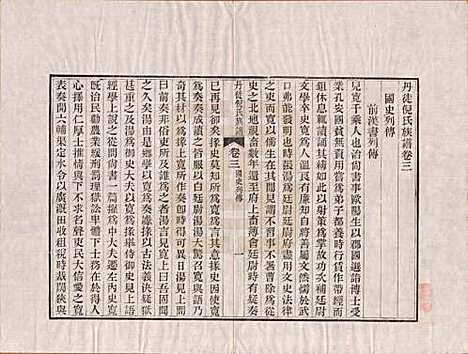 丹徒倪氏族譜卷三
國史列傳
前漢書列傳
兒寬千乘人也治尚書事歐陽生以郡國選詣博士受
業孔安國貧無資用嘗為弟子都養時行賃作帶經而
鉏休息輒讀誦其精如此以射策為掌故功次補廷尉
文學卒史寬為人溫良有廉知自將善屬文然懦於武
口弗能發明也時張湯為廷尉廷尉府盡用文史法律
之吏而寬以儒生在其間見謂不習事不署曹除為從
史之北地視畜數年還至府上畜簿會廷尉時有疑奏
丹徒倪氏族譜 卷三 國史列傳 一
已再見卻矣掾史莫知所為寬為言其意掾史因使寬
為奏奏成讀之皆服以白廷尉湯湯大驚召寬與語乃
奇其材以為掾上寬所作奏即時得可異日湯見上
問曰前奏非俗吏所及誰為之者湯言兒寬上曰吾固聞
之久矣湯由是鄉學以寬為奏讞掾以古法義決疑獄
甚重之及湯為御史大夫以寬為掾舉侍御史見上語
經學上說之從問尚書一篇擢為中大夫遷左內史寬
既治民勸農業緩刑罰理獄訟卑體下士務在於得人
心擇用仁厚士推情與下不求名聲吏民大信愛之寬
表奏開六輔渠定水令以廣溉田收租稅時裁闊狹與